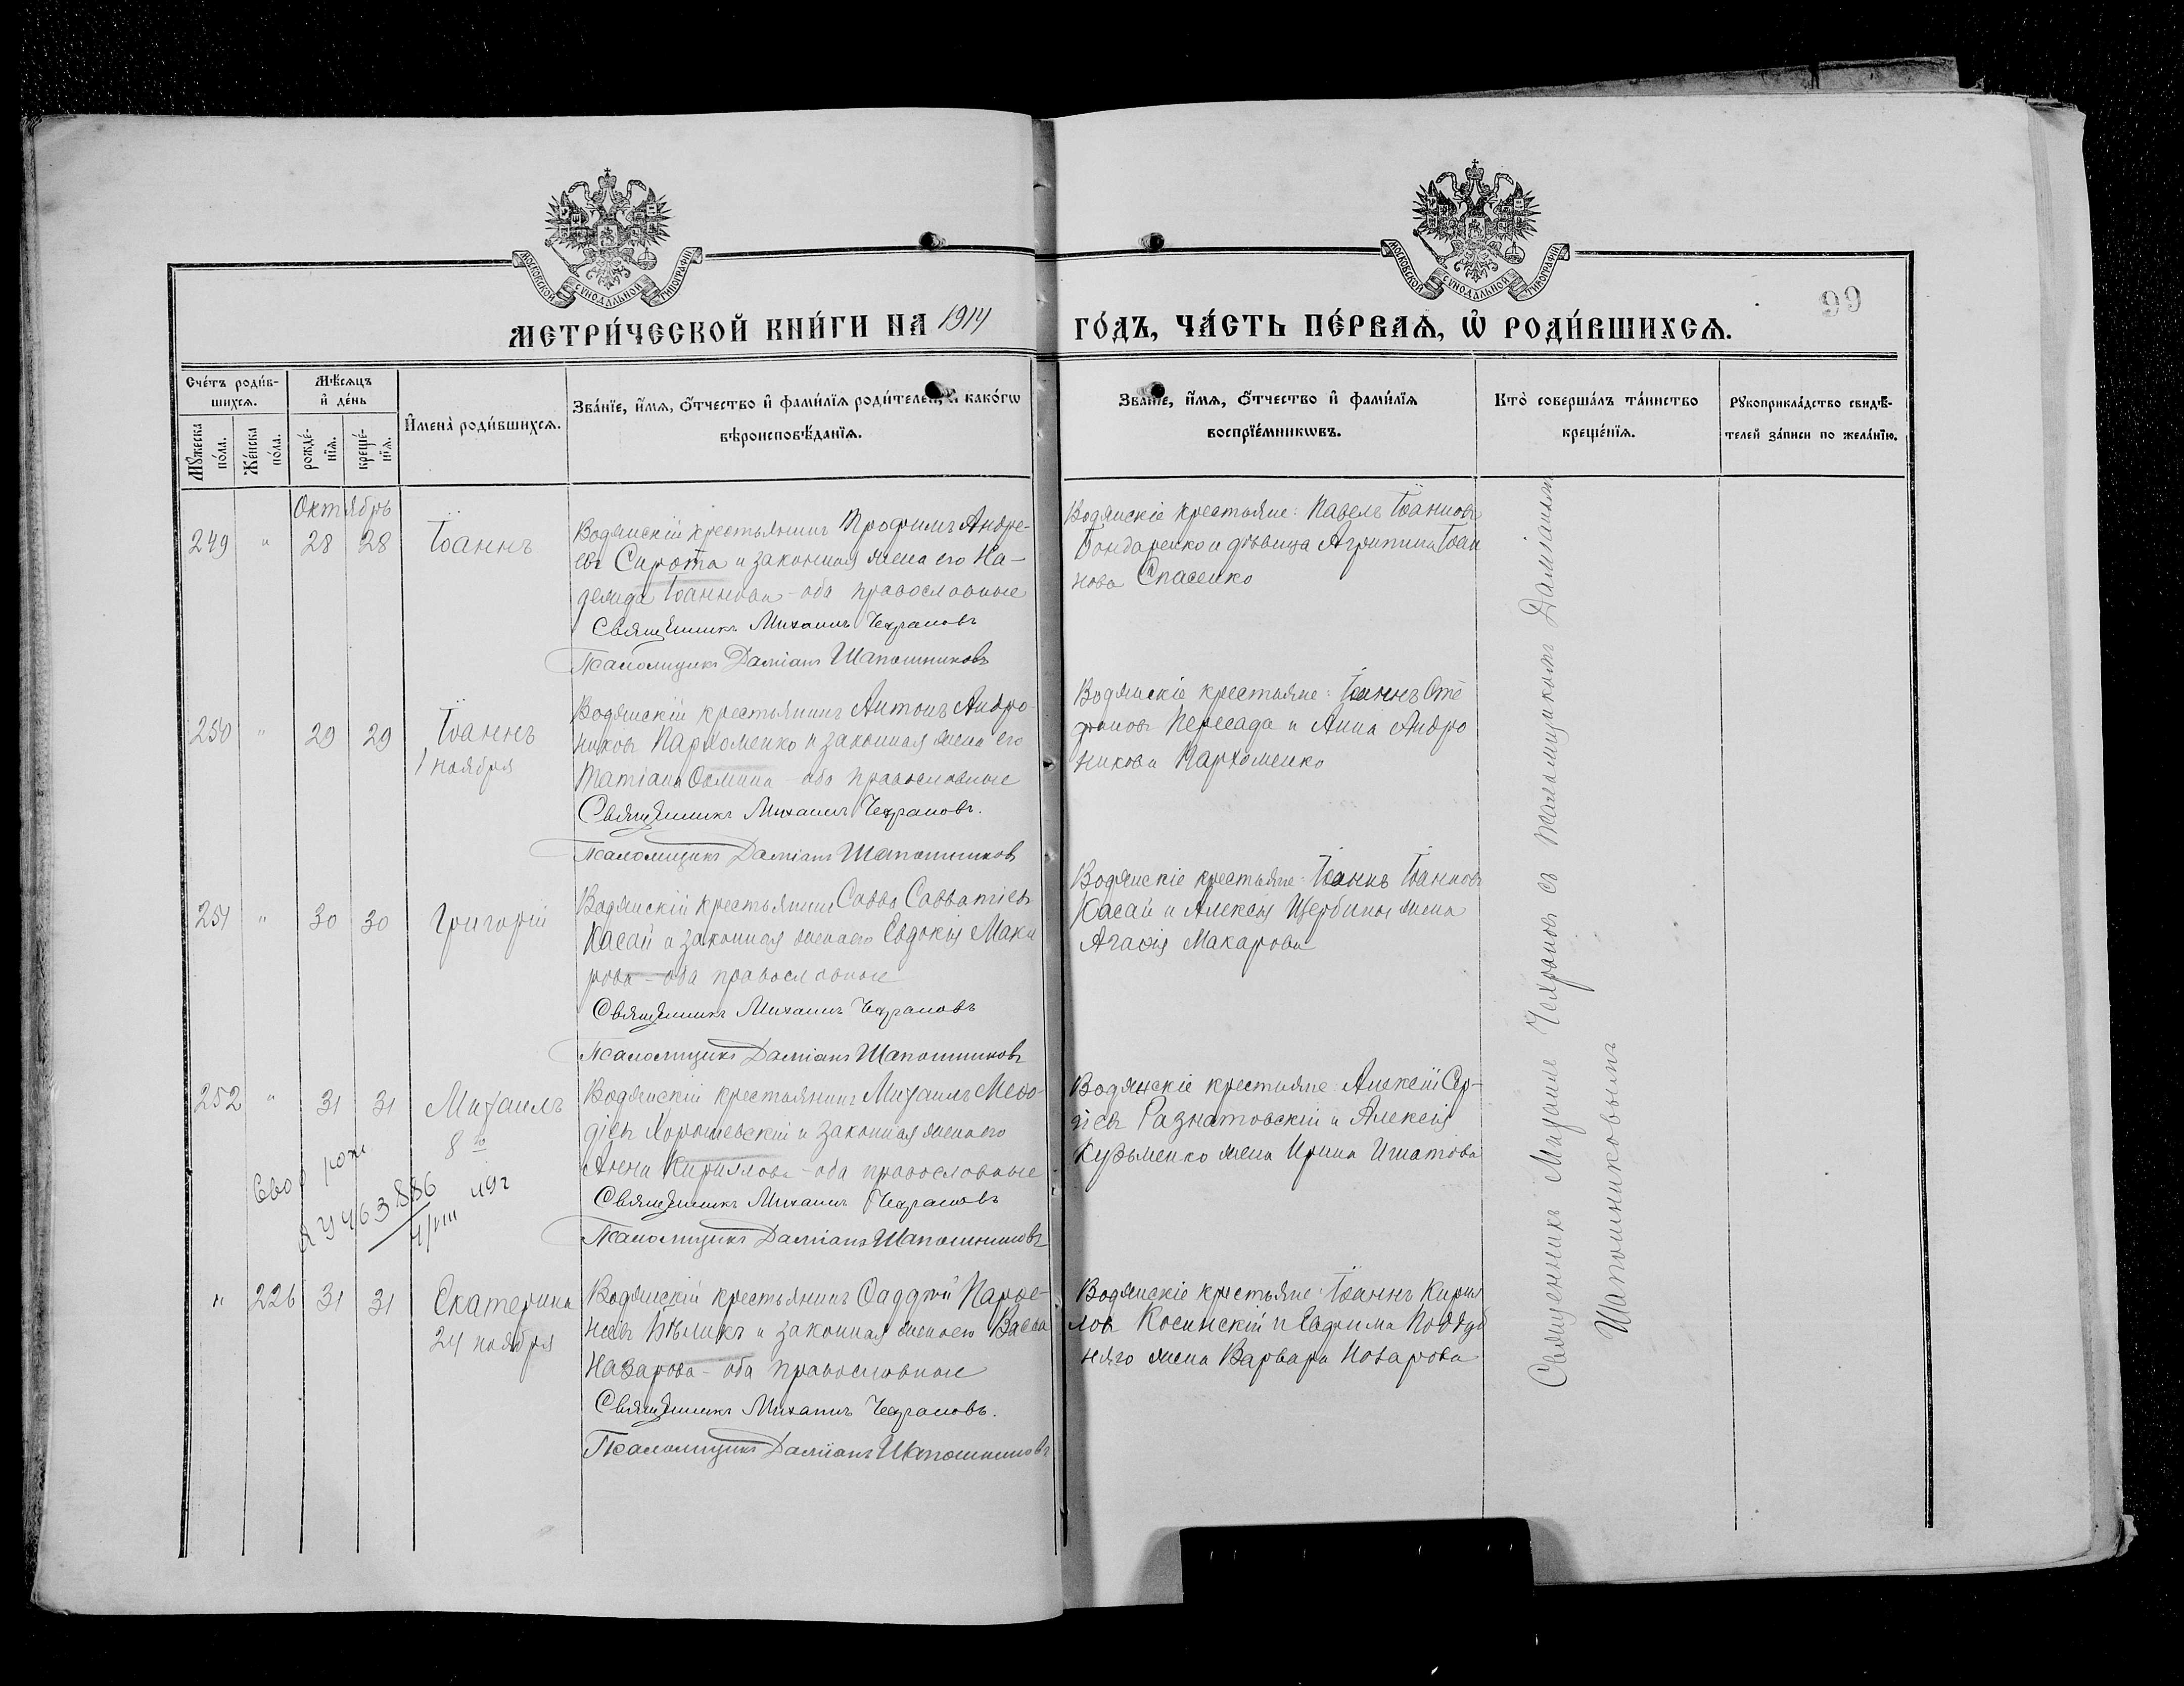 МОСКОВСКОЙ СѴНОДАЛЬНОЙ ТИПОГРАФІИ
МОСКОВСКОЙ СѴНОДАЛЬНОЙ ТИПОГРАФІИ
99
МЕТРИ́ЧЕСКОЙ КНИ́ГИ НА 1914 ГО́ДЪ, ЧА́СТЬ ПЕ́РВАЯ, Ѡ҆ РОДИ́ВШИХСЯ.
Сче́тъ роди́в-
шихся.
Мѣ́сяцъ
и҆ де́нь
И҆мена̀ роди́вшихся.
Зва́нїе, и҆́мя, ѻ҆́тчество и҆ фами́лїя роди́телей, и҆ како́гѡ
вѣроисповѣ́данїя.
Зва́нїе, и҆́мя, ѻ҆́тчество и҆ фами́лїя
воспрїе́мникѡвъ.
Кто̀ соверша́лъ та́инство
креще́нїя.
Рꙋкоприкла́дство свидѣ́-
телей за́писи по жела́нїю.
Мꙋ́жеска
по́ла.
Же́нска
по́ла.
рожде́-
нїя.
креще́-
нїя.
Октябрь
249 " 28 28 Іоаннъ
Водянскій крестьянинъ Трофимъ Андре-
евъ Сирота и законная жена его На-
дежда Іоаннова - оба православные
Священникъ Михаилъ Чехрановъ
Псаломщикъ Даміанъ Шапошниковъ
Водянскіе крестьяне: Павелъ Іоанновъ
Бондаренко и дѣвица Агрипина Іоан
нова Спасенко
250 " 29 29 Іоаннъ
1 ноября
Водянскій крестьянинъ Антонъ Андро-
никовъ Пархоменко и законная жена его
Татіана Ѳомина - оба православные
Священникъ Михаилъ Чехрановъ.
Псаломщикъ Даміанъ Шапошников
Водянскіе крестьяне: Іоаннъ Сте
фановъ Пересада и Анна Андро
никова Пархоменко
251 " 30 30 Григорій
Водянскій крестьянинъ Савва Савватіевъ
Касай и законная жена его Евдокія Мака
рова - оба православные
Священникъ Михаилъ Чехрановъ
Псаломщикъ Даміанъ Шапошниковъ
Водянскіе крестьяне: Іоаннъ Іоанновъ
Касай и Алексія Щербины жена
Агаѳія Макарова
252 " 31 31 Михаилъ
8 го
Водянскій крестьянинъ Михаилъ Меѳо-
діевъ Хорошевскій и законная жена его
Анна Кириллова - оба православные
Священникъ Михаилъ Чехрановъ
Псаломщикъ Даміанъ Шапошниковъ
Водянскіе крестьяне: Алексій Сер-
гіевъ Разнатовскій и Алексія
Кузьменко жена Ирина Игнатова
" 226 31 31 Екатерина
24 ноября
Водянскій крестьянинъ Ѳаддей Парѳе-
ніевъ Бѣликъ и законная жена его Васса
Назарова - оба православные
Священникъ Михаилъ Чехрановъ.
Псаломщикъ Даміанъ Шапошниковъ
Водянскіе крестьяне: Іоаннъ Кирил
ловъ Косинскій и Евфима Поддуб
няго жена Варвара
Священникъ Михаилъ Чехрановъ съ псаломщикомъ Даміаномъ
Шапошниковымъ